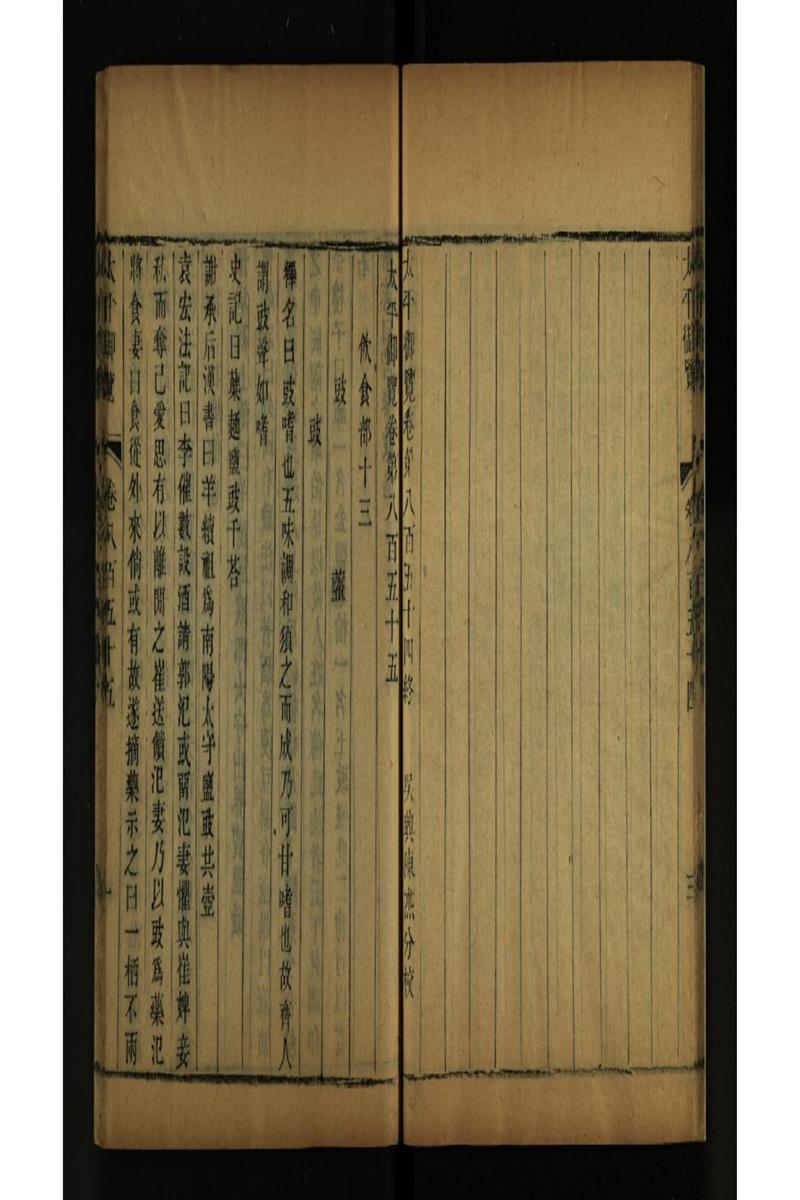 太平御覽卷第八百五十四終　吳興凌杰分校
太平御覽
卷八百五十四
三
太平御覽卷第八百五十五
飲食部十三
豉　虀
豉
釋名曰豉嗜也五味調和須之而成乃可甘嗜也故齊人
謂豉聲如嗜
史記曰蘖麴鹽豉千荅
謝承后漢書曰羊續祖爲南陽太守鹽豉共壺
袁宏法記曰李傕數設酒請郭汜或畱汜妻懼與崔婢妾
私而奪己愛思有以離閒之崔送饋汜妻乃以豉爲藥汜
將食妻曰食從外來倘或有故遂摘藥示之曰一栖不兩
太平御覽
卷八百五十五
一